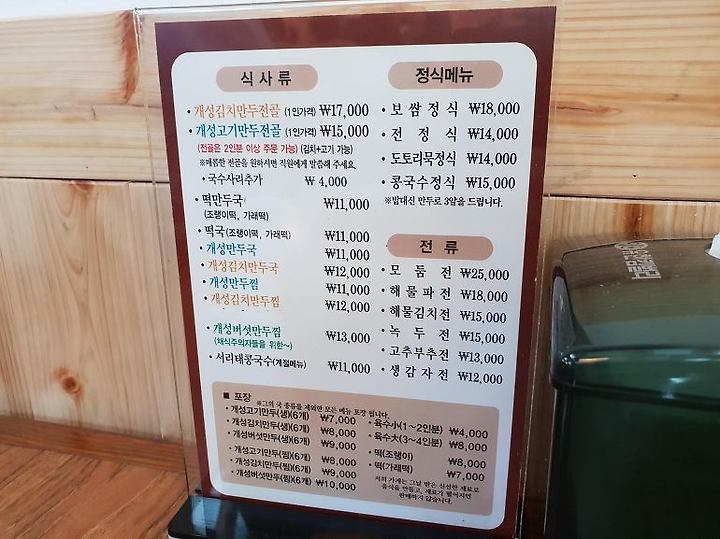 식사류
• 개성김치만두전골 (1인가격) ₩17,000
• 개성고기만두전골 (1인가격) ₩15,000
(전골은 2인분 이상 주문 가능) (김치+고기 가능)
※매콤한 전골을 원하시면 직원에게 말씀해 주세요.
• 국수사리추가 ₩ 4,000
• 떡만두국 ₩11,000
(조랭이떡, 가래떡)
• 떡국 (조랭이떡, 가래떡) ₩11,000
• 개성만두국 ₩11,000
• 개성김치만두국 ₩12,000
• 개성만두찜 ₩11,000
• 개성김치만두찜 ₩12,000
• 개성버섯만두찜 ₩13,000
(채식주의자들을 위한~)
• 서리태콩국수(계절메뉴) ₩11,000
정식메뉴
• 보쌈정식 ₩18,000
• 전정식 ₩14,000
• 도토리묵정식 ₩14,000
• 콩국수정식 ₩15,000
※밥대신 만두로 3알을 드립니다.
전류
• 모둠전 ₩25,000
• 해물파전 ₩18,000
• 해물김치전 ₩15,000
• 녹두전 ₩15,000
• 고추부추전 ₩13,000
• 생감자전 ₩12,000
■ 포장
※그외 국 종류를 제외한 모든 메뉴 포장 됩니다.
• 개성고기만두(생)(6개) ₩7,000
개성김치만두(생)(6개) ₩8,000
개성버섯만두(생)(6개) ₩9,000
• 개성고기만두(찜)(6개) ₩8,000
개성김치만두(찜)(6개) ₩9,000
개성버섯만두(찜)(6개) ₩10,000
• 육수小(1~2인분) ₩4,000
• 육수大(3~4인분) ₩8,000
• 떡(조랭이) ₩8,000
• 떡(가래떡) ₩7,000
저희 가게는 그날 받은 신선한 재료로
음식을 만들고, 재료가 떨어지면
판매하지 않습니다.